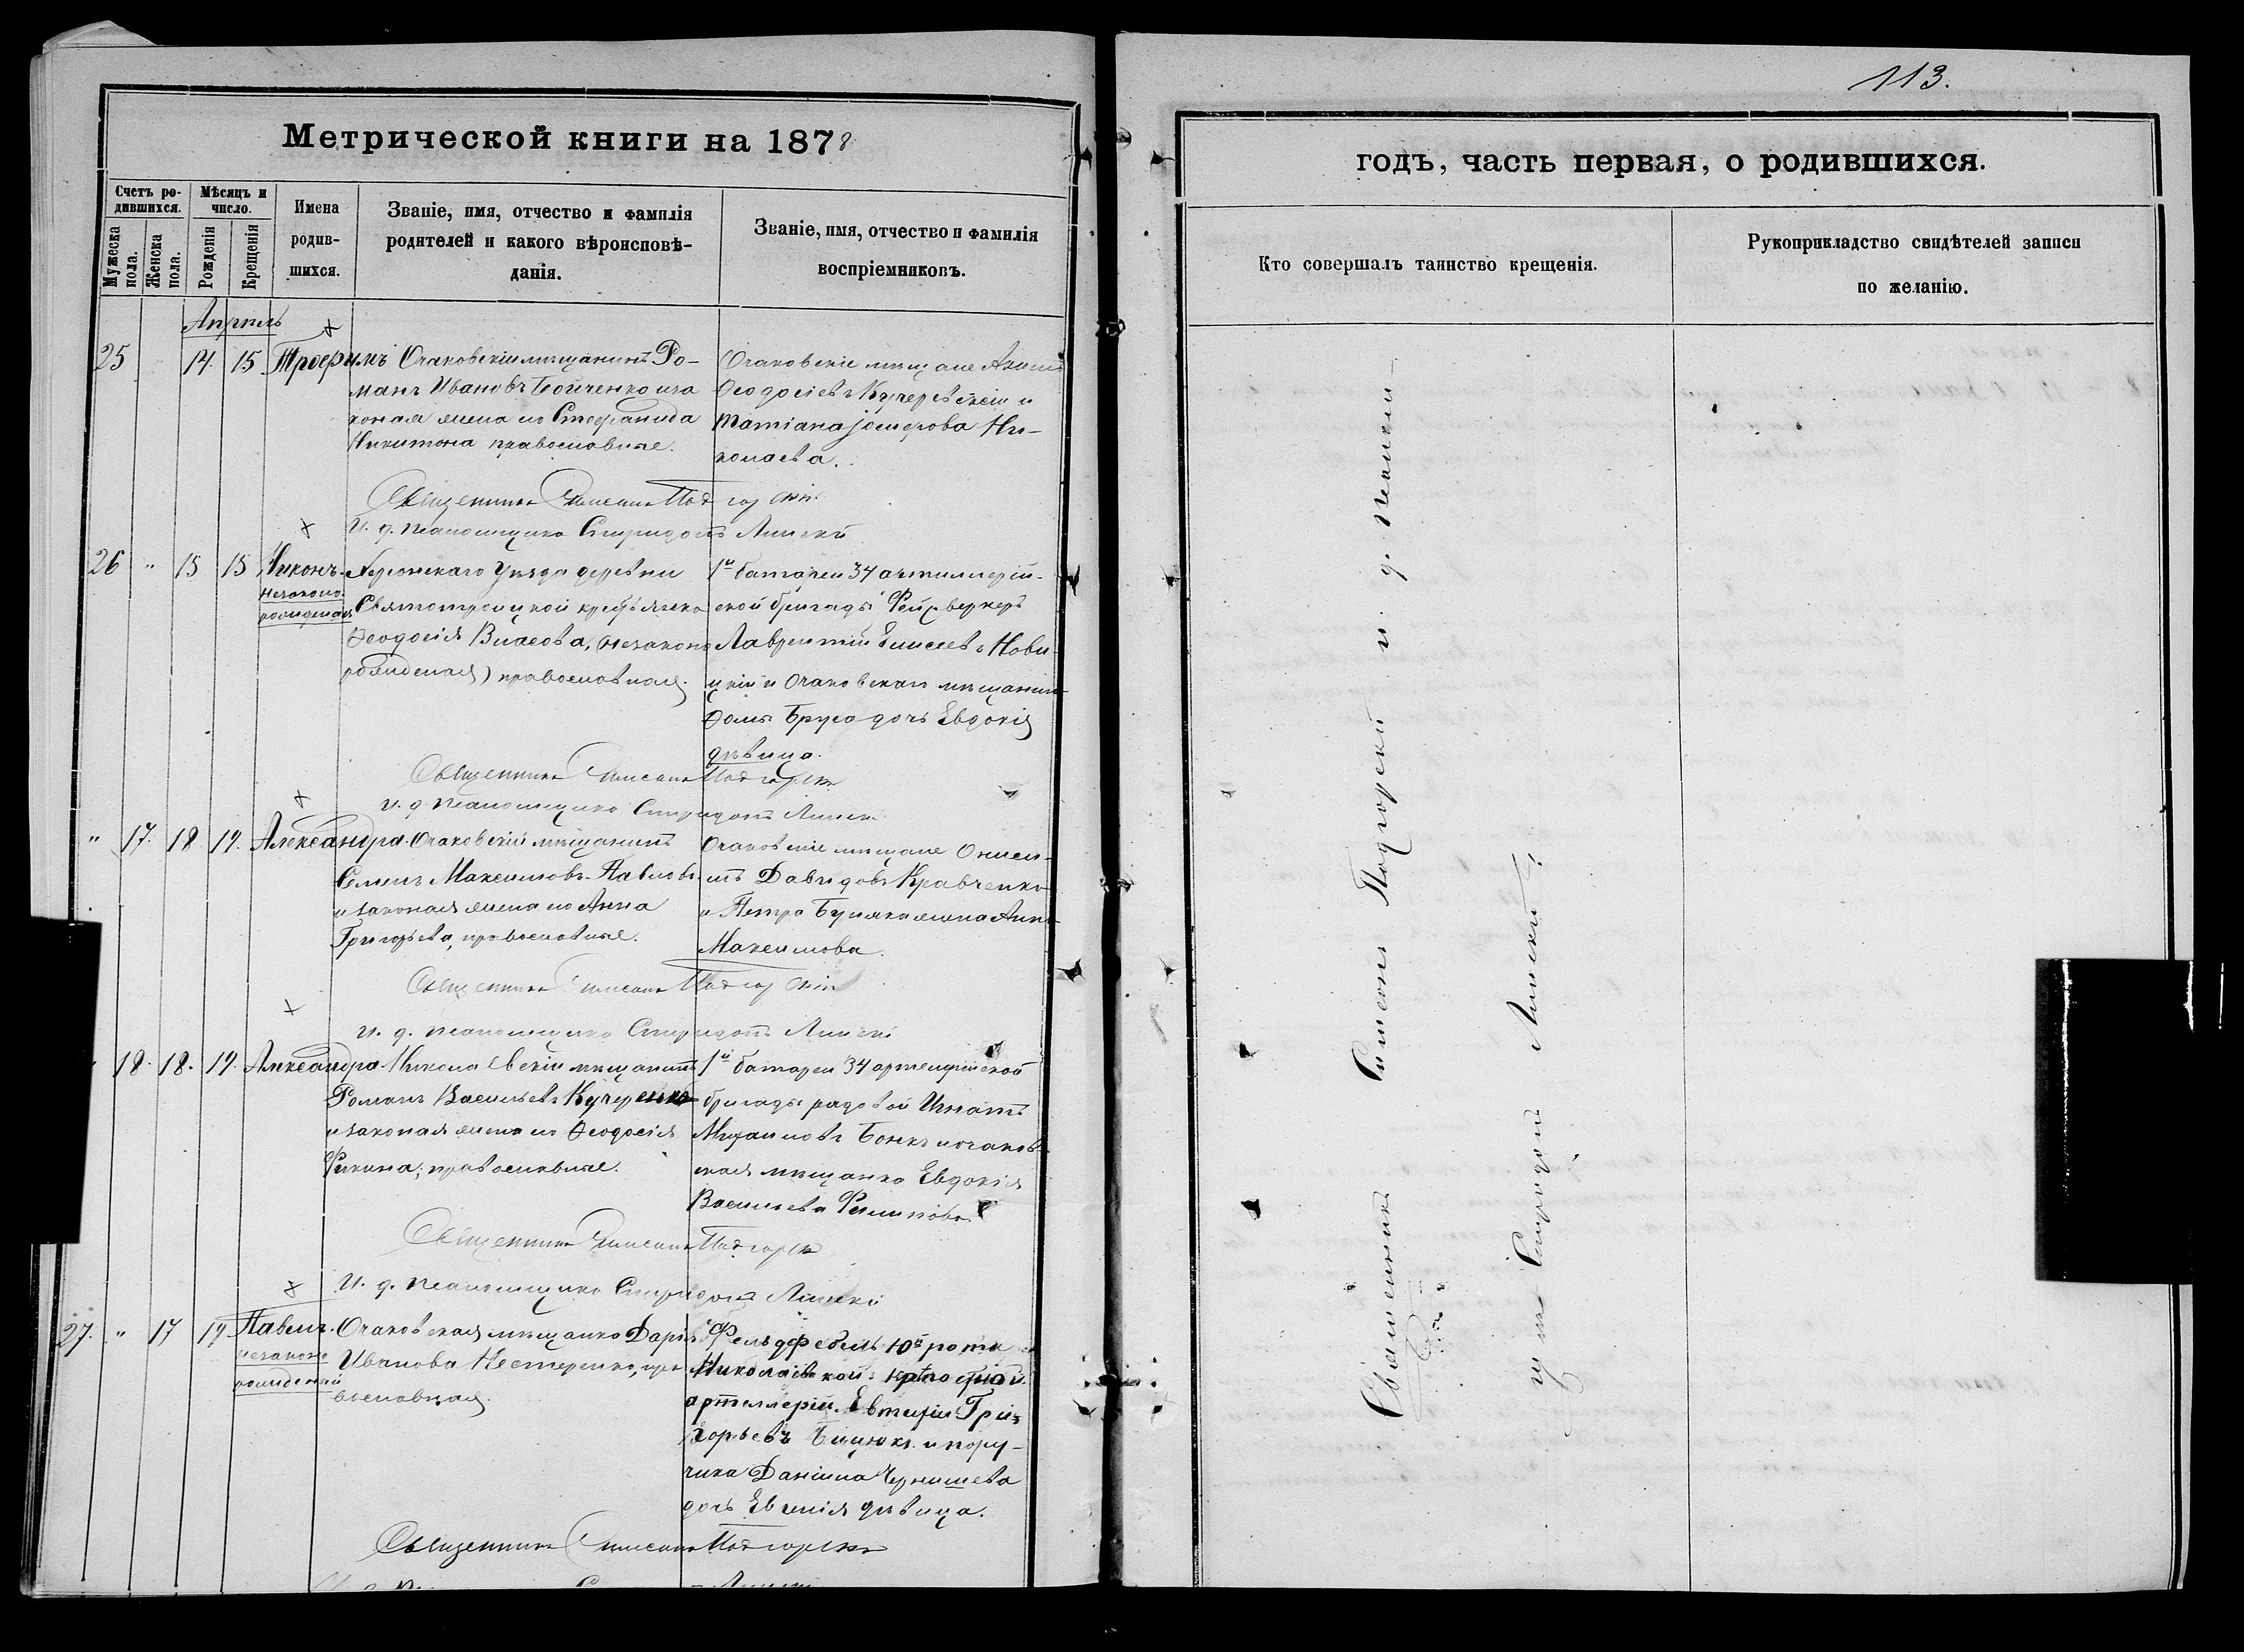 113.
Метрической книги на 1878
годъ, часть первая, о родившихся.
Счетъ родившихся.
Мужеска пола.
Женска пола.
Мѣсяцъ и число.
Рожденія
Крещенія
Имена родившихся.
Званіе, имя, отчество и фамилія родителей и какого вѣроисповѣданія.
Званіе, имя, отчество и фамилія воспріемниковъ.
Кто совершалъ таинство крещенія.
Рукоприкладство свидѣтелей записи по желанію.
Апрѣль
25 14. 15. Трофимъ
Очаковскій мѣщанинъ Ро-
манъ Ивановъ Бойченко и за
коная жена его Стефанида
Никитина православные.
Очаковскіе мѣщане
Ѳеодосіевъ Кучеревскій и
Татіана Ни-
колаева.
Священникъ Симеонъ Подгорскій
И. д. псаломщика Спиридонъ Линскій
26 " 15 15 Никонъ.
незаконо
рожденый
Херсонскаго Уѣзда деревни
Святотроицкой крестьянка
Ѳеодосія Власова, (незаконо
рожденая) православная.
1й батареи 34 артиллерій-
ской бригады Фейерверкеръ
Лаврентій Елисеевъ Нови-
цкій и Очаковскаго мѣщанина
Ѳомы Бруса дочь Евдокія
дѣвица.
Священникъ Симеонъ Подгорскій
и. д. псаломщика Спиридонъ Линскій
" 17. 18 19. Александра.
Очаковскій мѣщанинъ
Семенъ Максимовъ Павловъ
и законая жена его Анна
Григорьева, православные.
Очаковскіе мѣщане Онисим-
ъ Давидовъ Кравченко
и Петра жена Анна
Максимова.
Священникъ Симеонъ Подгорскій
и. д. псаломщика Спиридонъ Линскій
18. 18. 19. Александра.
Николаевскій мѣщанинъ
Романъ Васильевъ Кучеренко
и законая жена его Ѳеодосія
православные.
1й батареи 34 артилерійской
бригады рядовой Игнатъ
Михайловъ и очаков-
ская мѣщанка Евдокія
Васильева Филипова
Священникъ Симеонъ Подгорскій
И. д. псаломщика Спиридонъ Линскій
27. " 17 19 Павелъ.
незаконо
рожденый
Очаковская мѣщанка Дарія
Иванова Нестеренко, пра
вославная.
Фельдфебель 10й роты
Николаевской крѣпостной
артиллеріи Евтихій Гри-
горьевъ и пору-
чика Даніила Чернышева
дочь Евгенія дѣвица.
Священникъ Симеонъ Подгорскій
Священникъ Симеонъ Подгорскій и. д. псаломщи-
ка Спиридонъ Линскій